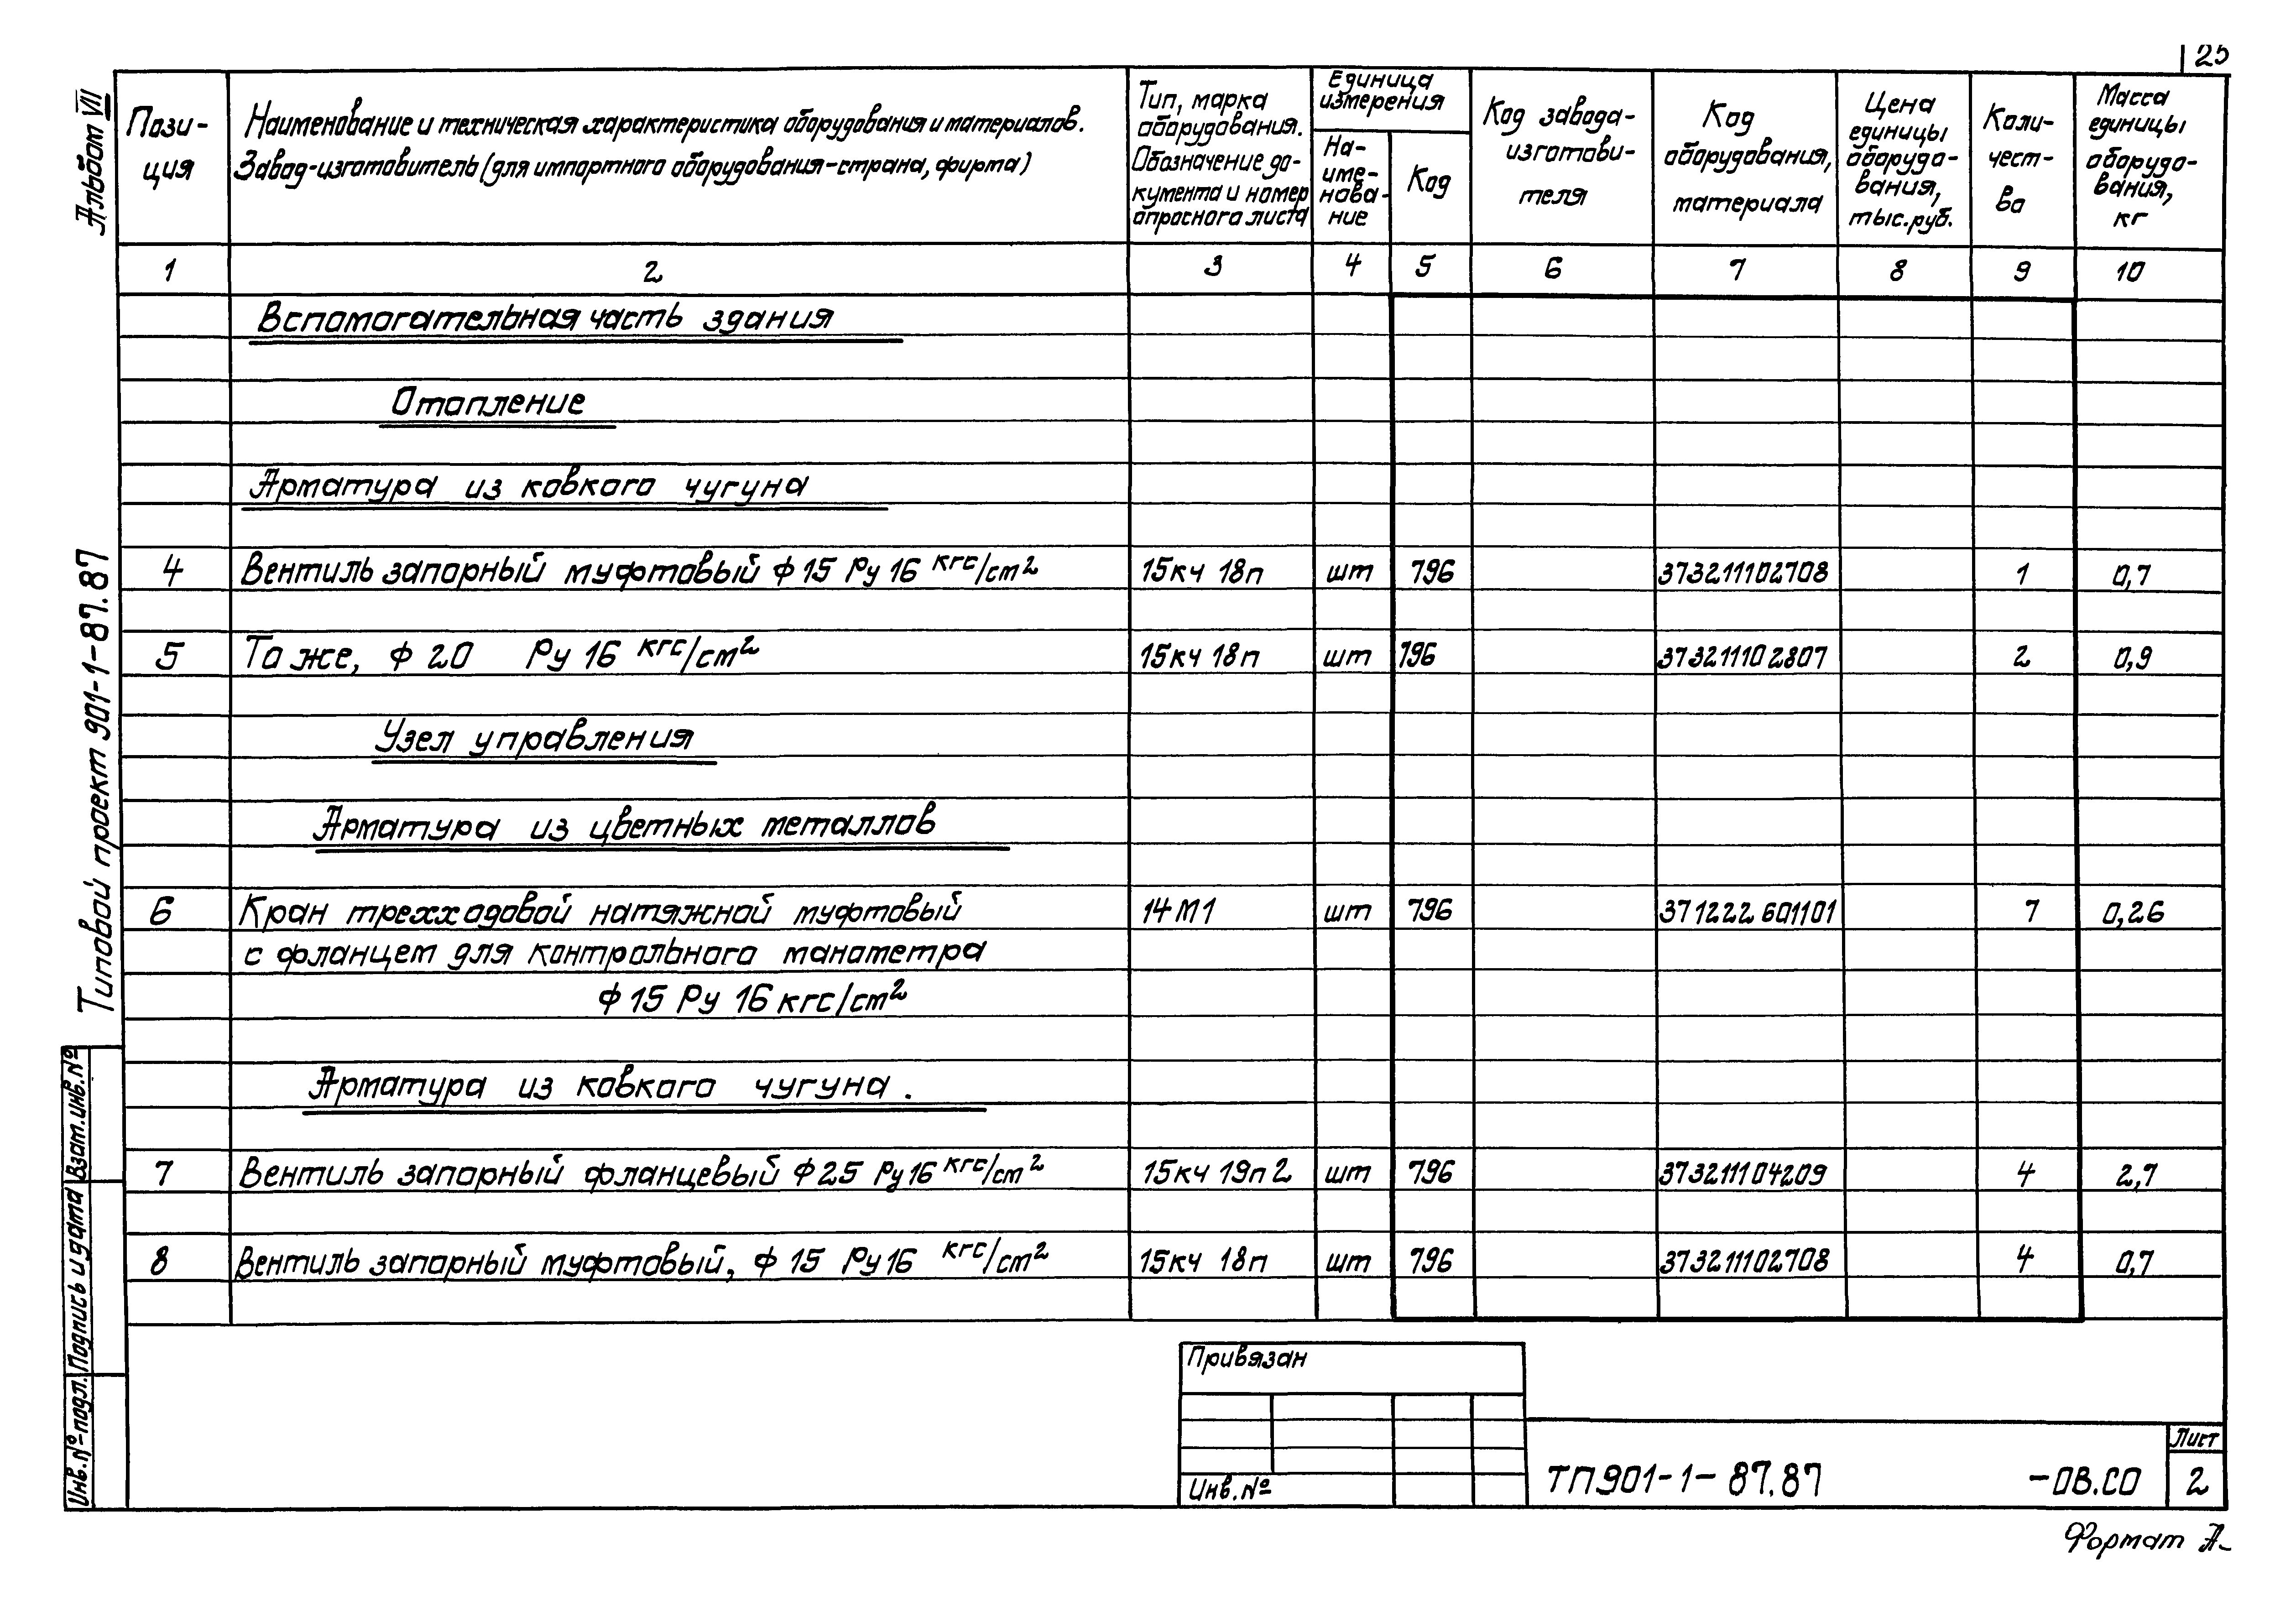 25
Альбом VII
Типовой проект 901-1-87.87
Пози-
ция
Наименование и техническая характеристика оборудования и материалов.
Завод-изготовитель (для импортного оборудования-страна, фирма)
Тип, марка
оборудования.
Обозначение до-
кумента и номер
опросного листа
Единица
измерения
На-
име-
нова-
ние
Код
Код завода-
изготови-
теля
Код
оборудования,
материала
Цена
единицы
оборудо-
вания,
тыс.руб.
Коли-
чест-
во
Масса
единицы
оборудо-
вания,
кг
1 2 3 4 5 6 7 8 9 10
Вспомогательная часть здания
Отопление
Арматура из ковкого чугуна
4 Вентиль запорный муфтовый ф 15 Ру 16 кгс/см² 15кч 18п шт 796 373211102708 1 0,7
5 То же, ф 20 Ру 16 кгс/см² 15кч 18п шт 796 373211102807 2 0,9
Узел управления
Арматура из цветных металлов
6 Кран трехходовой натяжной муфтовый 14М1 шт 796 371222601101 7 0,26
с фланцем для контрольного манометра
ф 15 Ру 16 кгс/см²
Арматура из ковкого чугуна.
7 Вентиль запорный фланцевый ф 25 Ру 16 кгс/см² 15кч 19п2 шт 796 373211104209 4 2,7
8 Вентиль запорный муфтовый, ф 15 Ру 16 кгс/см² 15кч 18п шт 796 373211102708 4 0,7
Взам.инв.№
Подпись и дата
Инв.№ подл.
Привязан
Инв.№
ТП901-1-87.87 -ОВ.СО
Лист
2
Формат А